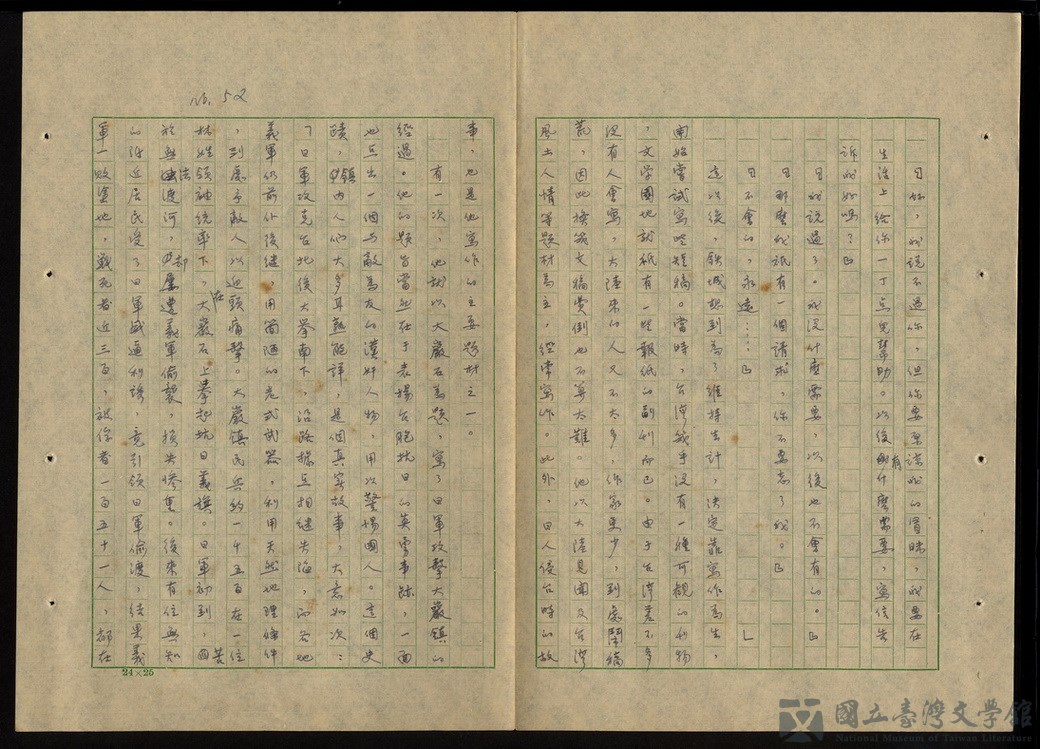 No. 52
「好，我說不過你，但你要原諒我的冒昧，我要在
生活上給你一丁点兒幫助。以後有什麼需要，寫信告
訴我好嗎？」
「我說過了。我沒什麼需要，以後也不會有的。」
「那麼我祇有一個請求，你不要忘了我。」
「不會的，永遠……」
這以後，鉄城想到為了維持生計，決定靠寫作為生，
開始嘗試寫些短稿。當時，台灣幾乎沒有一種可觀的刊物
，文学園地就祇有一些報紙的副刊而已。由于台湾差不多
沒有人會寫，大陸來的人又不太多，作家更少，到處鬧稿
荒，因此換篇文稿費倒也不算太難。他以大陸見聞及台灣
風土人情等題材為主，經常寫作。此外，日人侵台時的故
事，也是他寫作的主要題材之一。
有一次，他就以大巖石為題，寫了日軍攻擊大巖鎮的
經過。他的題旨當然在于表揚台胞抗日的英勇事跡，一面
也点出一個与敵為友的漢奸人物，用以警惕國人。這個史
蹟，鎮內人們大多耳熟能詳，是個真实故事，大意如次：
「日軍攻克台北後大舉南下，沿路據点相繼失陷，而各地
義軍仍前仆後継，用簡陋的老式武器，利用天然地理條件
，到處予敵人以迎頭痛擊。大巖鎮民兵約一千五百在一位
林姓領袖統率下，在大巖石上舉起抗日義旗。日軍初到，因苦
於無法渡河，却屢遭義軍偷襲，損失慘重。後來有位無知
的附近居民受了日軍威逼利誘，竟引領日軍偷渡，結果義
軍一敗塗地，戰死者近三百，被俘者一百五十一人，都在
24×25
國立臺灣文學館
National Museum of Taiwan Literature